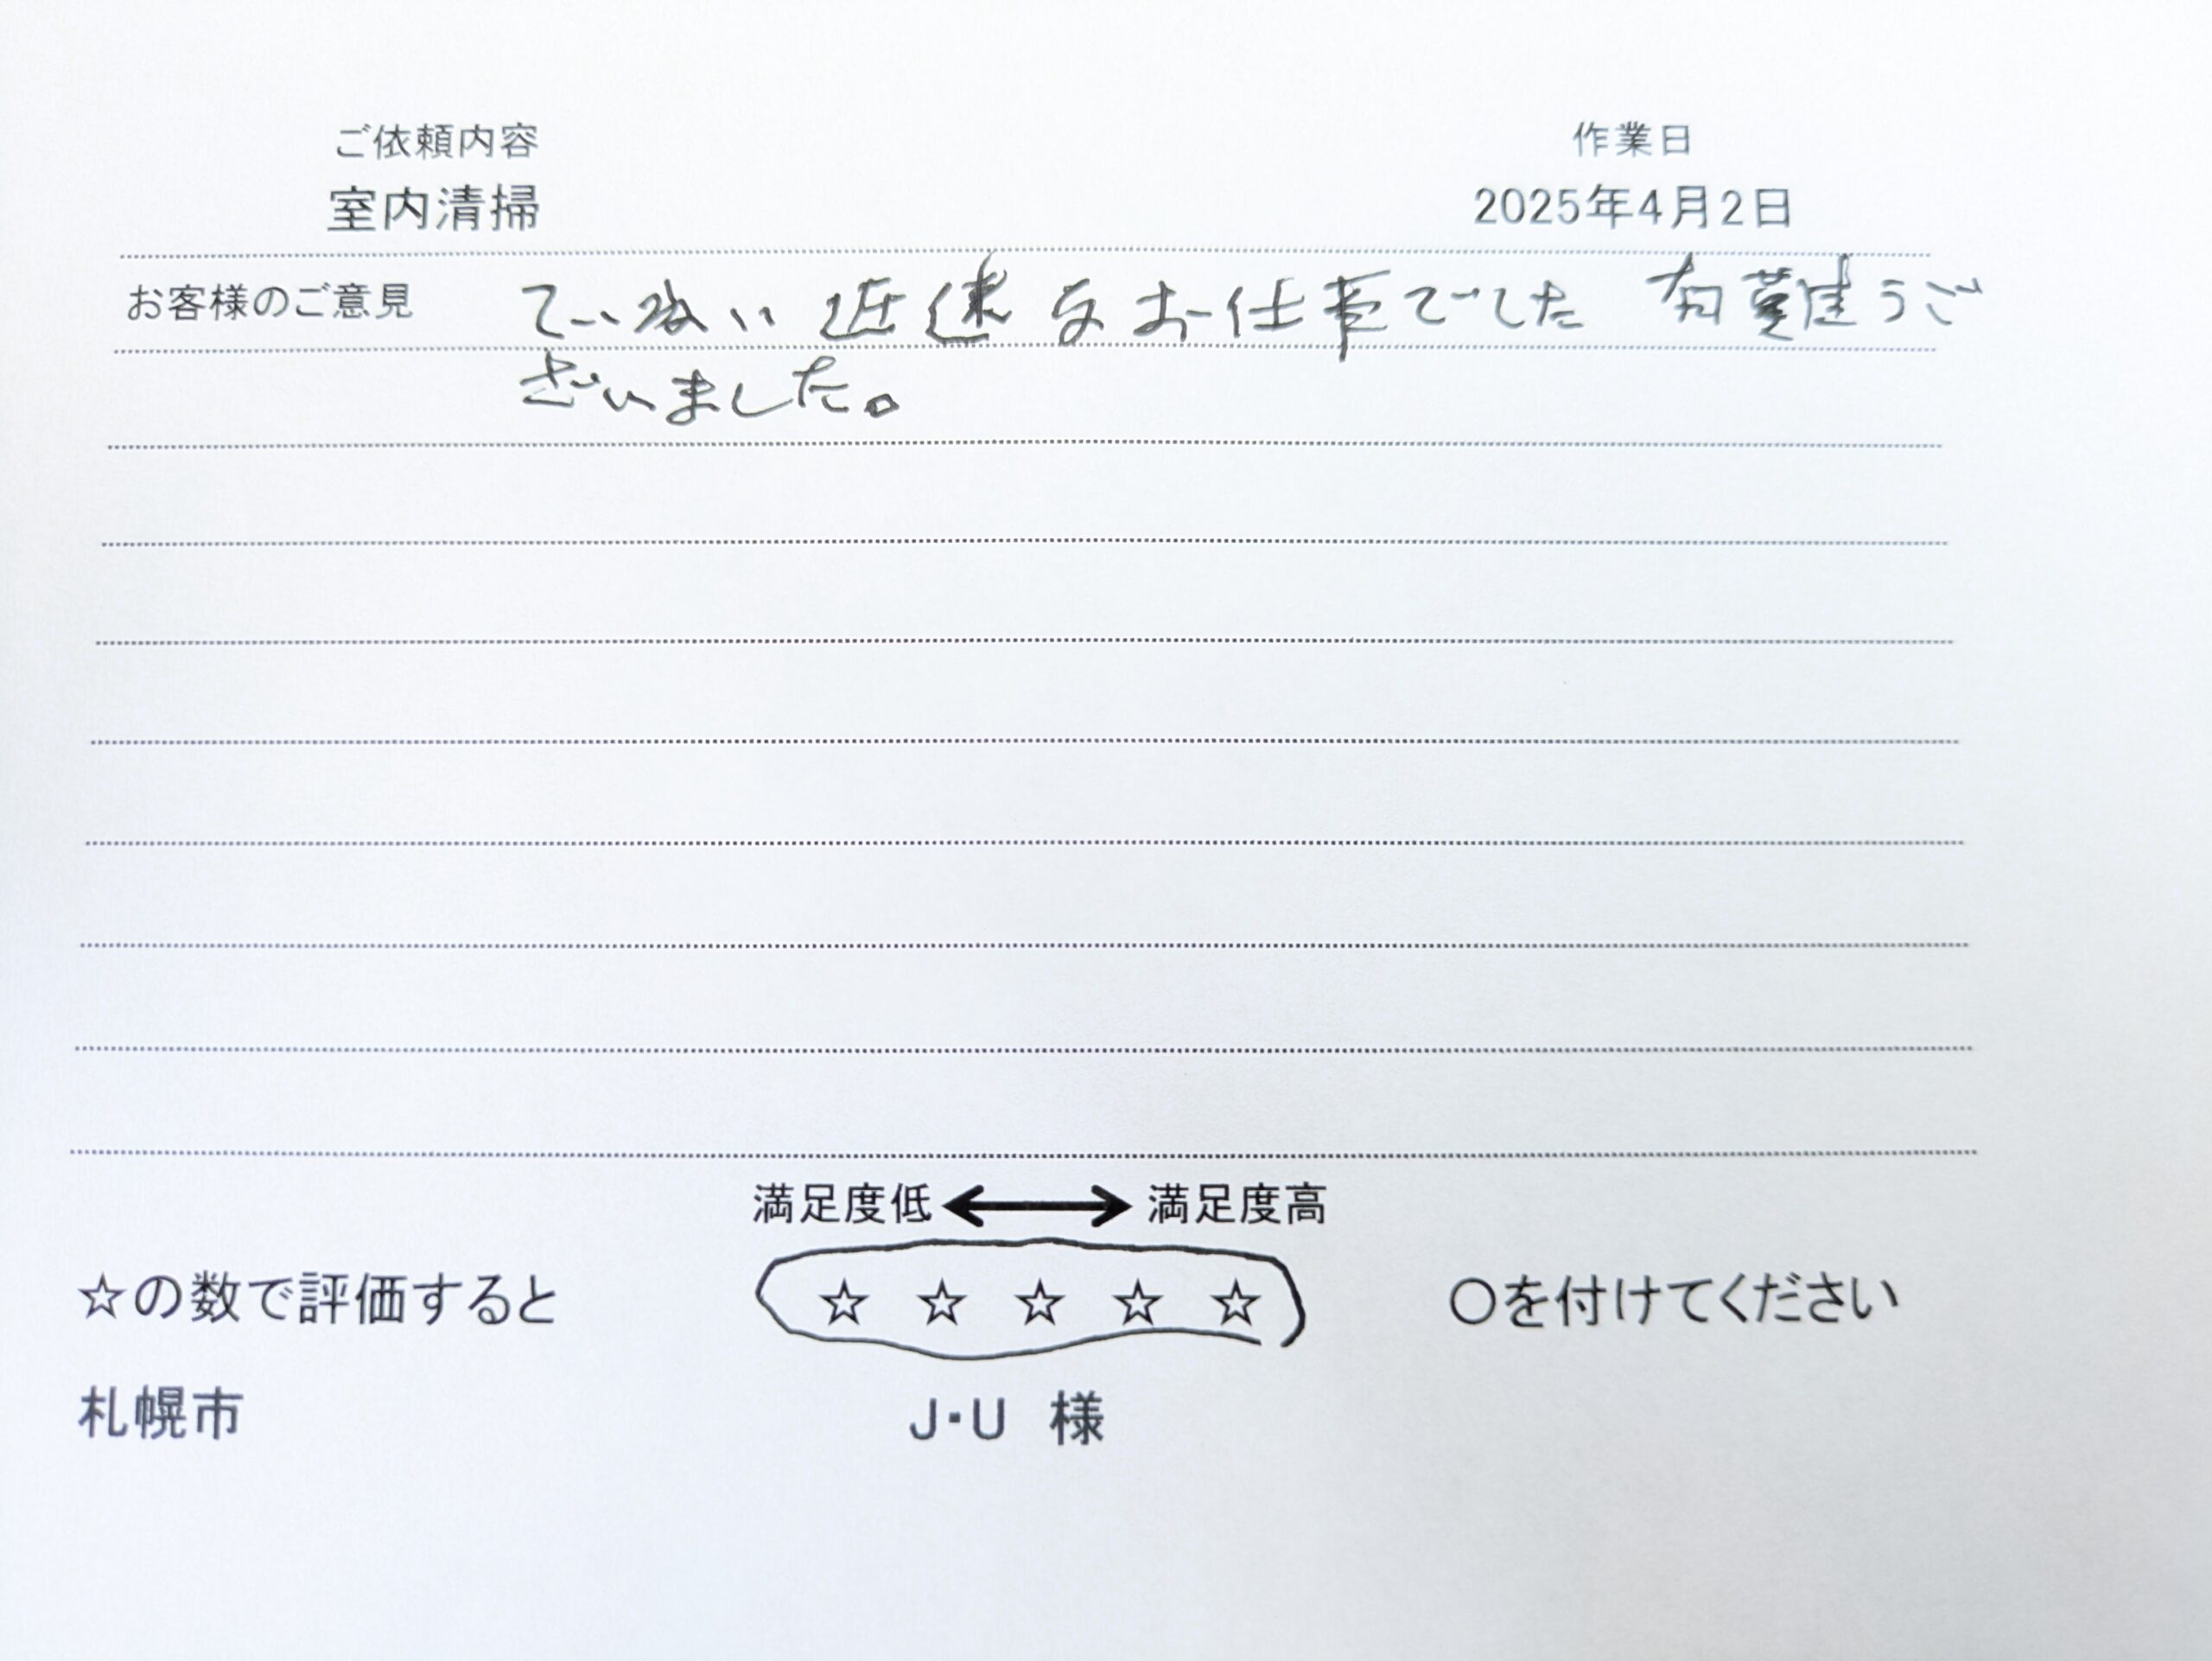 ご依頼内容 作業日
室内清掃 2025年4月2日
お客様のご意見 ていねい 迅速なお仕事でした 有難うご
ざいました。
満足度低 ←→ 満足度高
☆の数で評価すると ☆ ☆ ☆ ☆ ☆ 〇を付けてください
札幌市 J・U 様